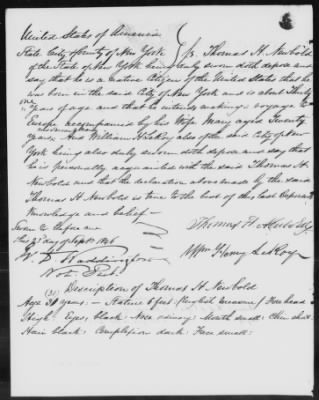 United States of America
State City & County of New York } ss. Thomas H. Newbold
of the State of New York being duly sworn doth depose and
say that he is a native Citizen of the United States that he
was born in the said City of New York and is about Thirty
one
years of age and that he intends making a voyage to
Europe accompanied by his Wife Mary aged Twenty
years, And William H. LeRoy also of the said City of New
York being also duly sworn doth depose and say that
he is personally acquainted with the said Thomas H.
Newbold and that the declaration above made by the said
Thomas H. Newbold is true to the best of this last Deponents
Knowledge and belief —
Sworn to before me
this day of 1846
Thomas H. Newbold
Wm Henry LeRoy
Waddington
Not. Pub.
(31) Description of Thomas H. Newbold
Age 31 years: — Stature 6 feet: (English measure) Forehead
High: Eyes, black: Nose ordinary: Mouth small: Chin
Hair black: Complexion dark: Face small: